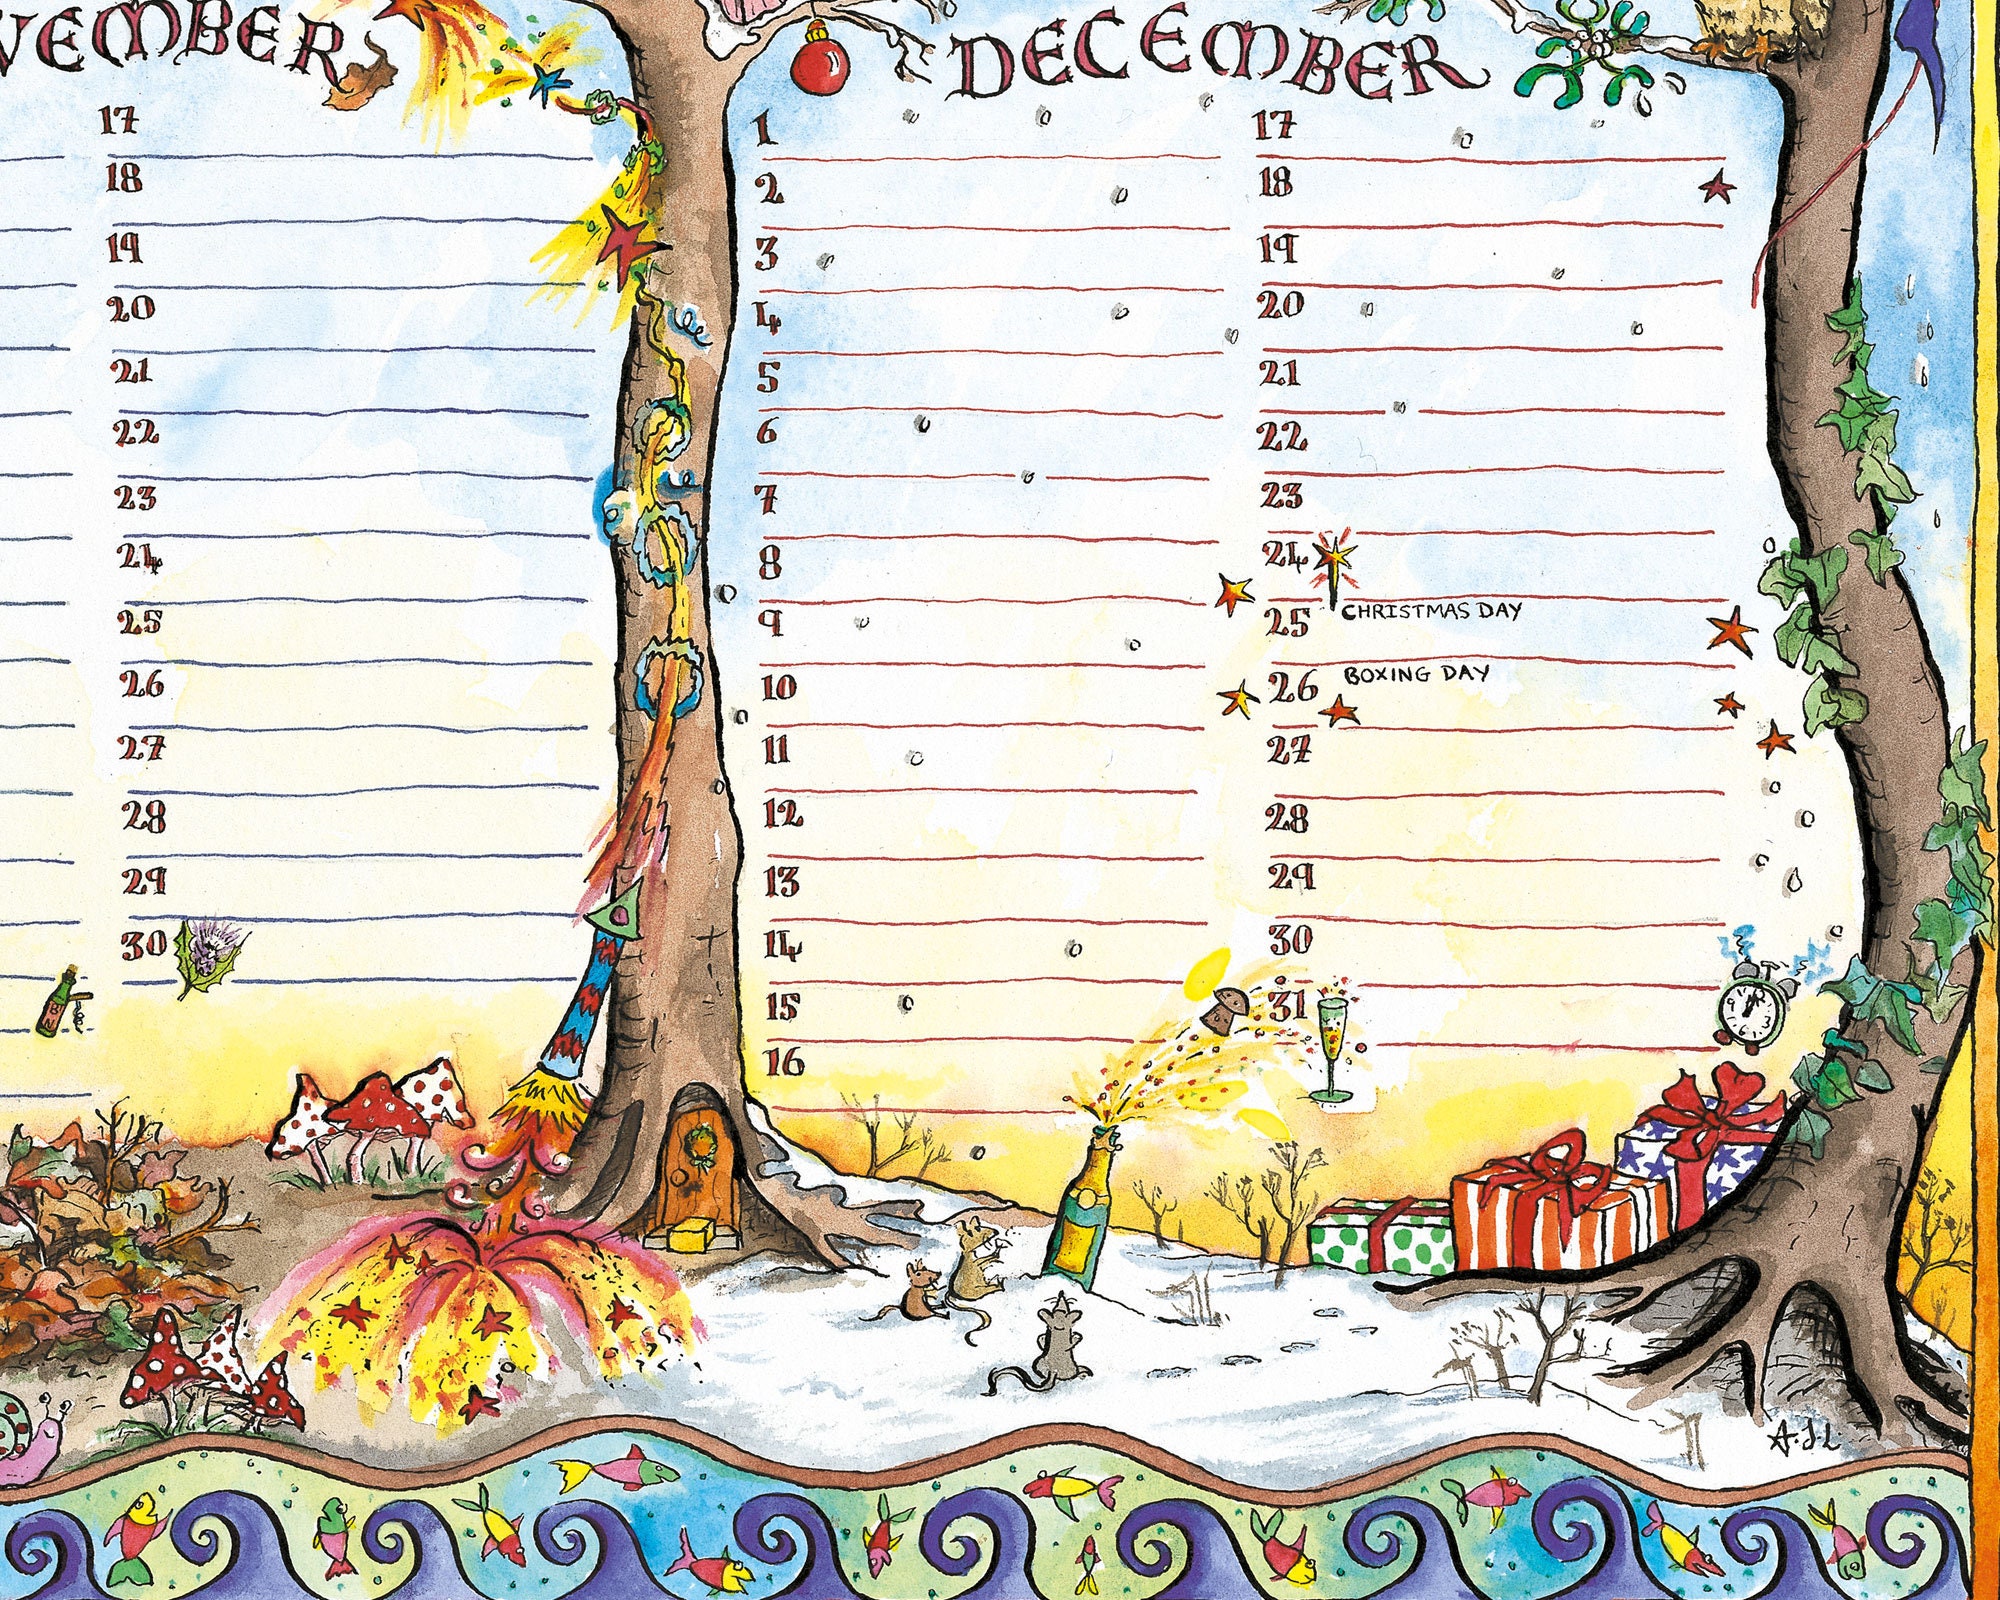 VEMBER
17
18
19
20
21
22
23
24
25
26
27
28
29
30
BN
DECEMBER
1
2
3
4
5
6
7
8
9
10
11
12
13
14
15
16
17
18
19
20
21
22
23
24
25 CHRISTMAS DAY
26 BOXING DAY
27
28
29
30
31
A.J.L.